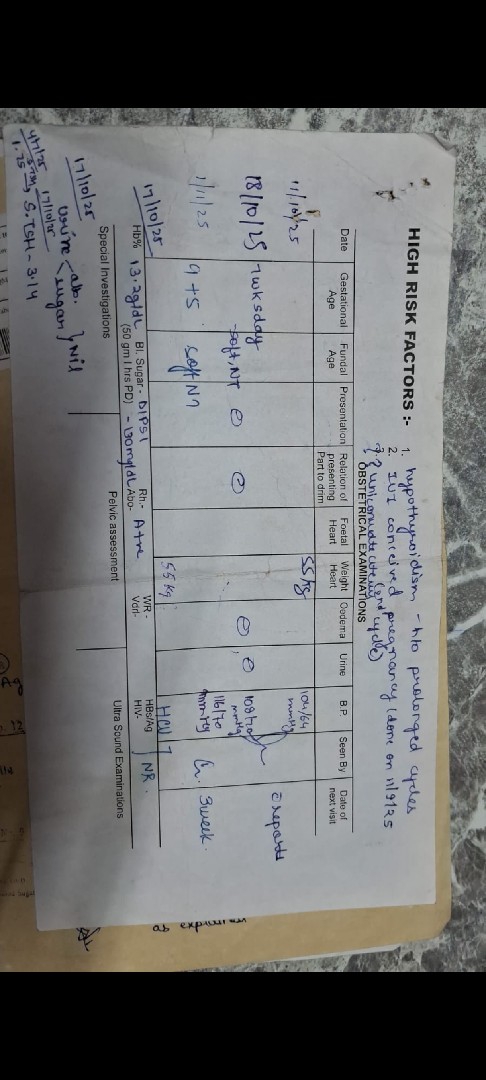 HIGH RISK FACTORS :-
1. hypothyroidism - h/o prolonged cycles
2. IUI conceived pregnancy (done on 11/9/25
(2nd cycle)
3. ? Unicornuate uterus
OBSTETRICAL EXAMINATIONS
Date Gestational Age Fundal Age Presentation Relation of presenting Part to drim Foetal Heart Weight Heart Oedema Urine B.P. Seen By Date of next visit
11/10/25 55 kg 104/64 mmHg
18/10/25 7wks day soft, NT ⊖ ⊖ ⊖ ⊖ 108/70 mmHg c̄ reports
1/11/25 9+5 soft NT 55 kg 116/70 mmHg 3 week.
17/10/25 Hb% 13.2g/dL Bl. Sugar - DIPSI Rh.- A+ve WR - HBs/Ag HCV
(50 gm I hrs PD) - 130mg/dL Abo- Vdrl- HIV- NR.
Special Investigations Pelvic assessment Ultra Sound Examinations
17/10/25
Urine alb. sugar } Nil
4/7/25 17/10/25
1.75 → S.TSH - 3.14
as explained